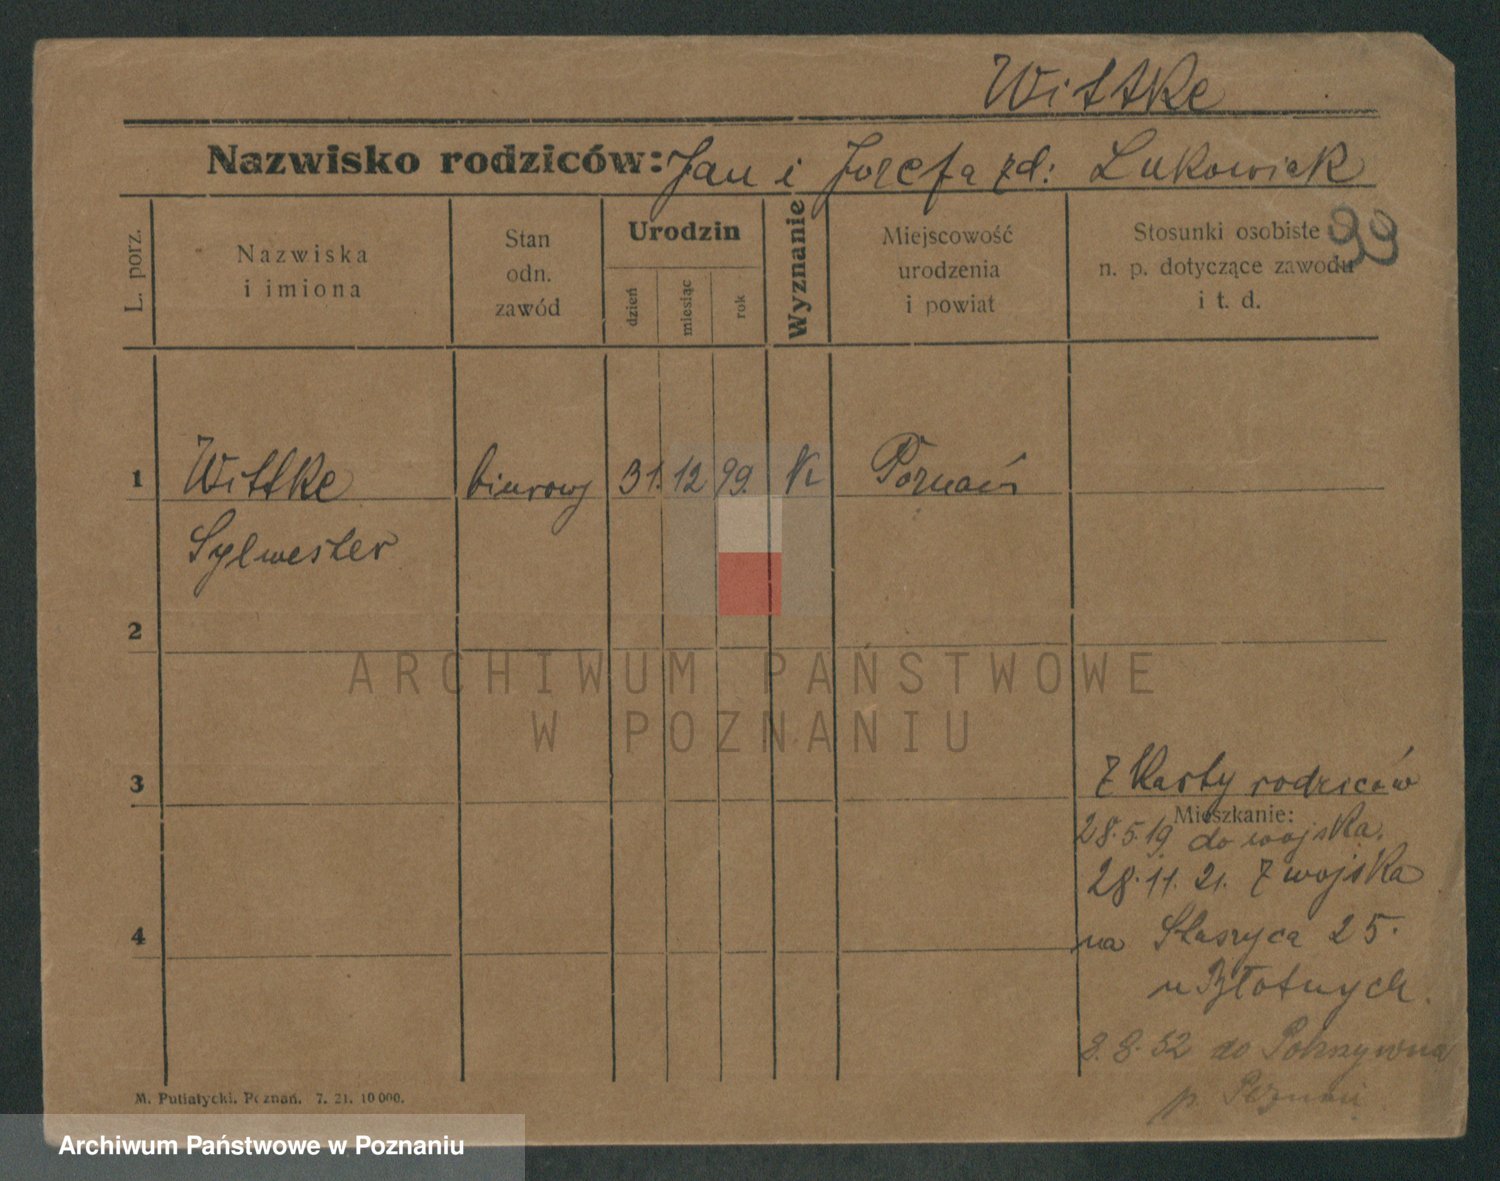 Wittke
Nazwisko rodziców: Jan i Jozefa zd: Lukowiak
99
L. porz.
Nazwiska
i imiona
Stan
odn.
zawód
Urodzin
dzień
miesiąc
rok
Wyznanie
Miejscowość
urodzenia
i powiat
Stosunki osobiste
n. p. dotyczące zawodu
i t. d.
1 Wittke biurowy 31. 12 99. K Poznań
Sylwester
2
3
Z Karty rodziców
Mieszkanie:
28.5.19 do wojska.
28.11.21. Z wojska
4
na Staszyca 25.
u Błotnych.
8.8.32 do Pokrzywna
p. Poznań
M. Putiatycki, Poznań. 7. 21. 10 000.
ARCHIWUM PAŃSTWOWE
W POZNANIU
Archiwum Państwowe w Poznaniu